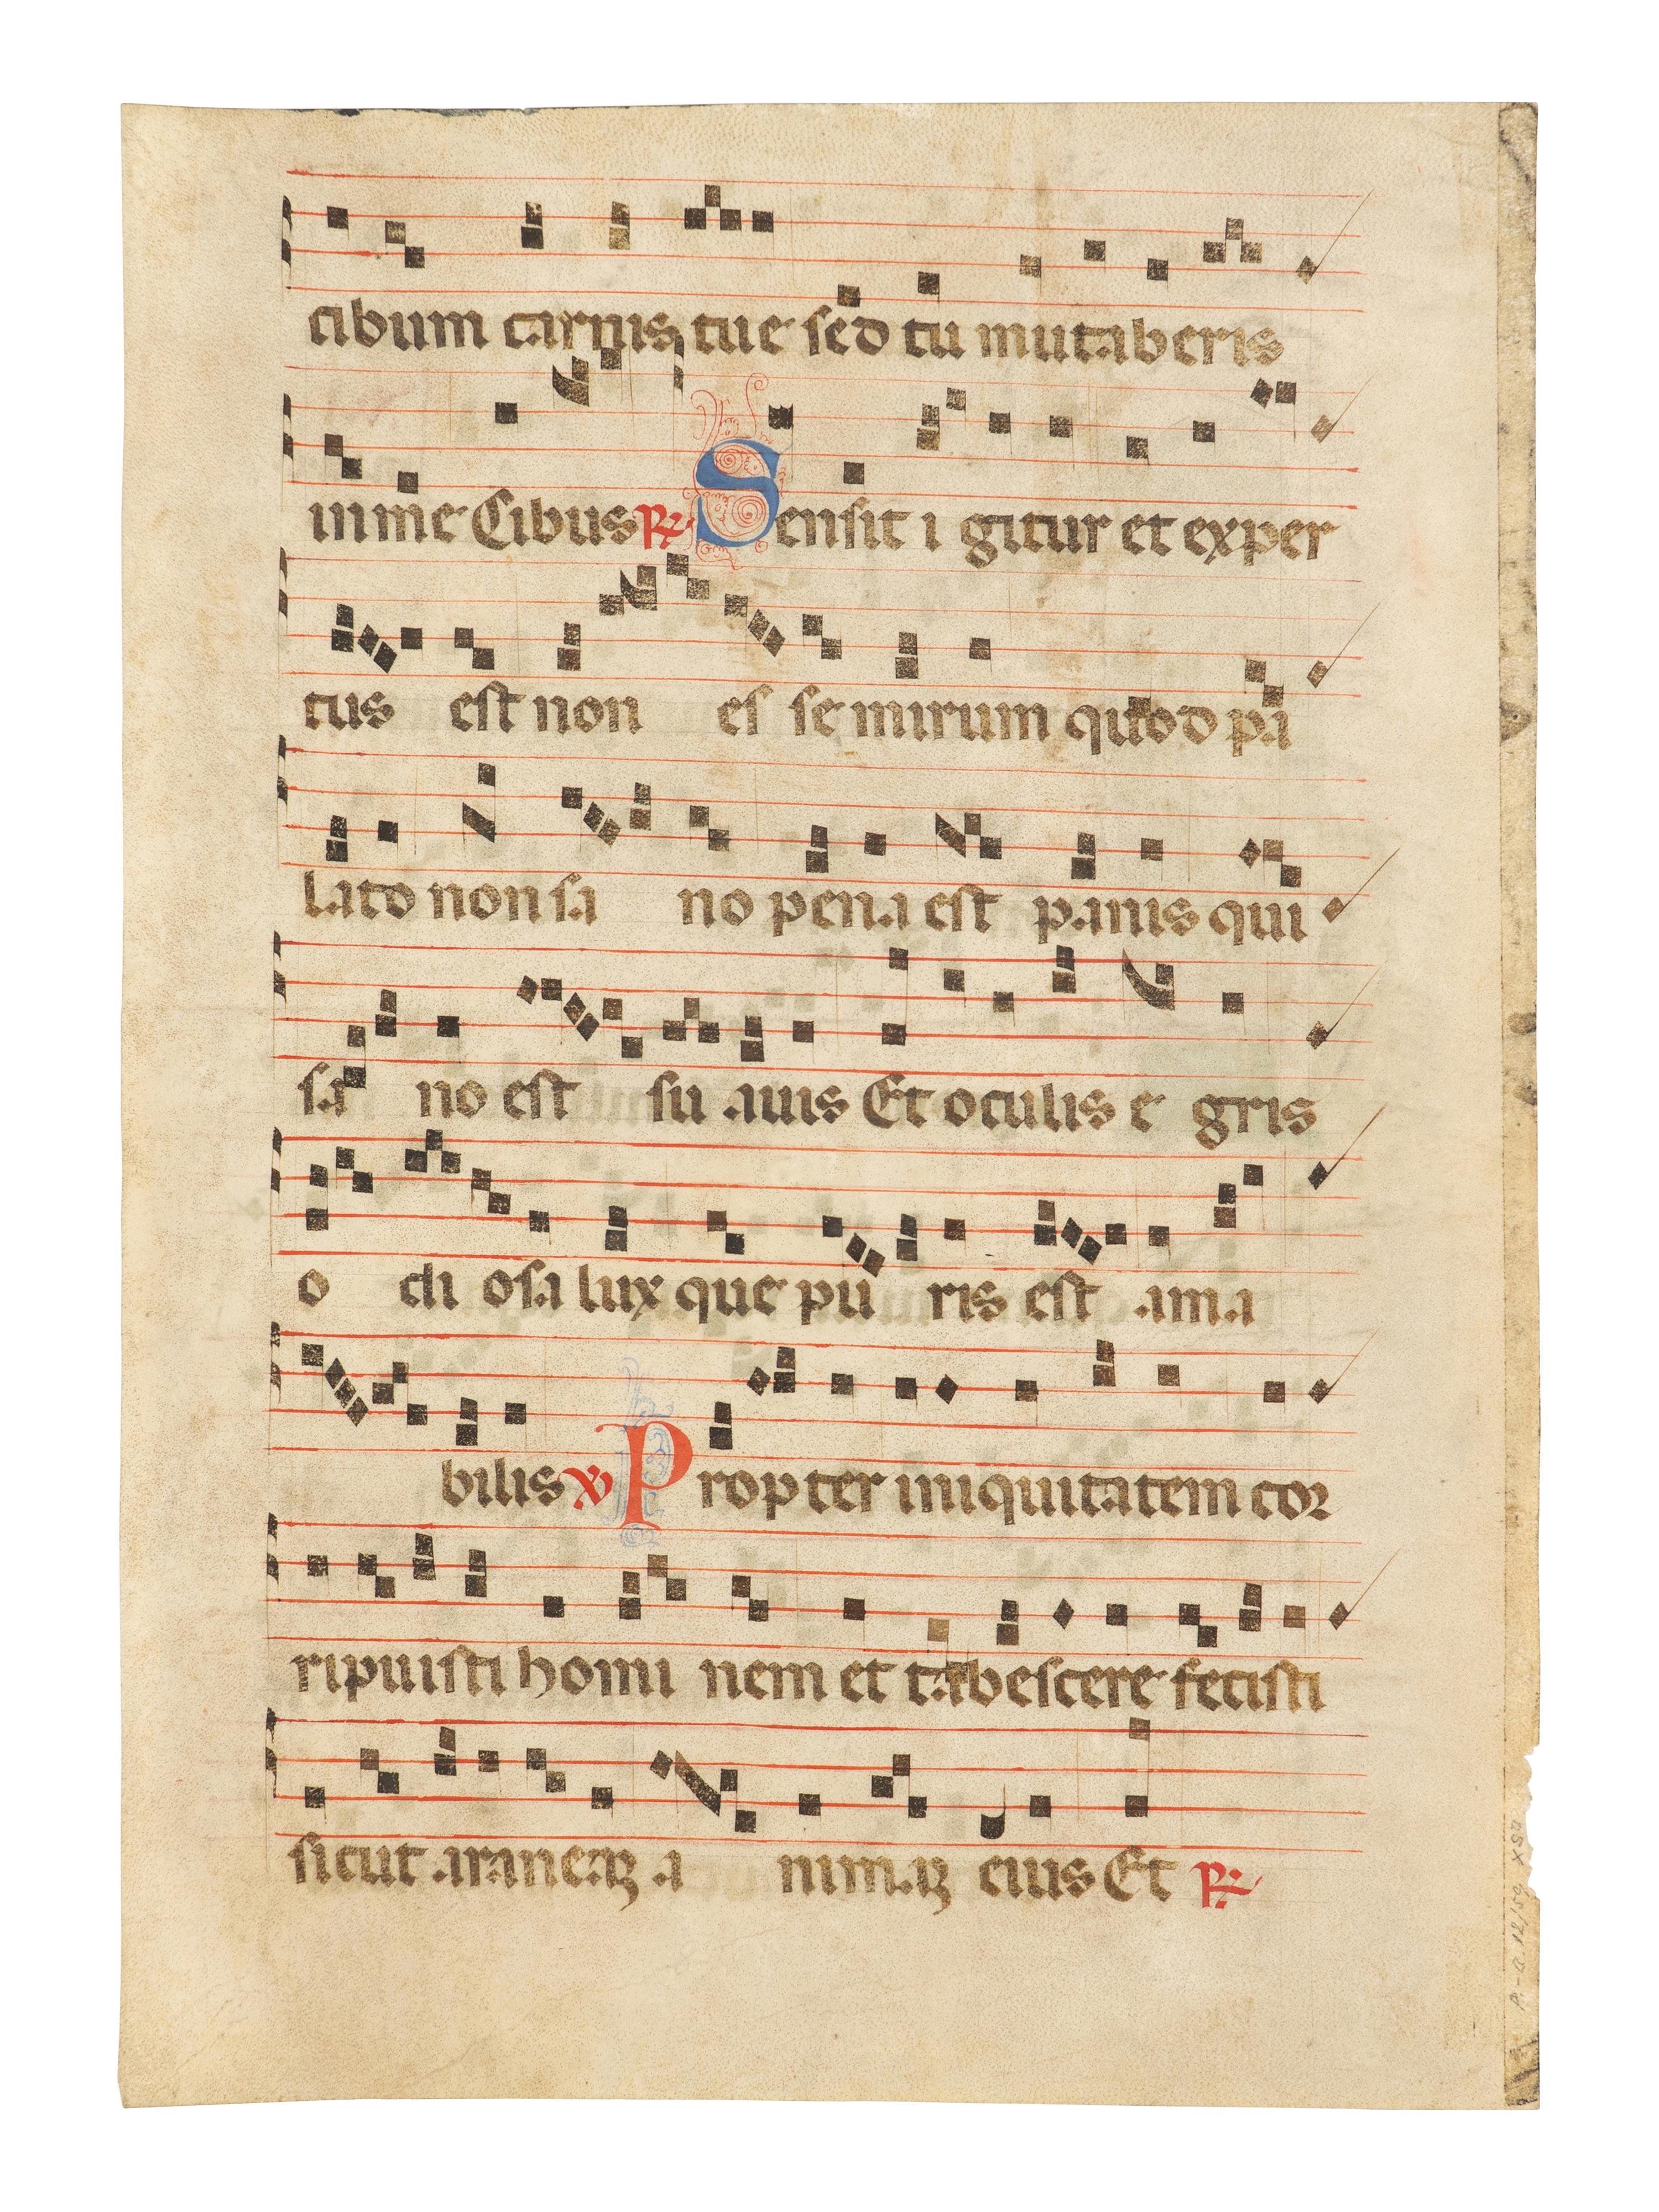 cibum carnis tue sed tu mutaberis
in me Cibus ℟ Sensit i gitur et exper
tus est non es se mirum quod pa
lato non sa no pena est panis qui
sa no est su auis Et oculis e gris
o di osa lux que pu ris est ama
bilis ℣ Propter iniquitatem cor
ripuisti homi nem et tabescere fecisti
sicut araneaꝫ a nimaꝫ eius Et ℟